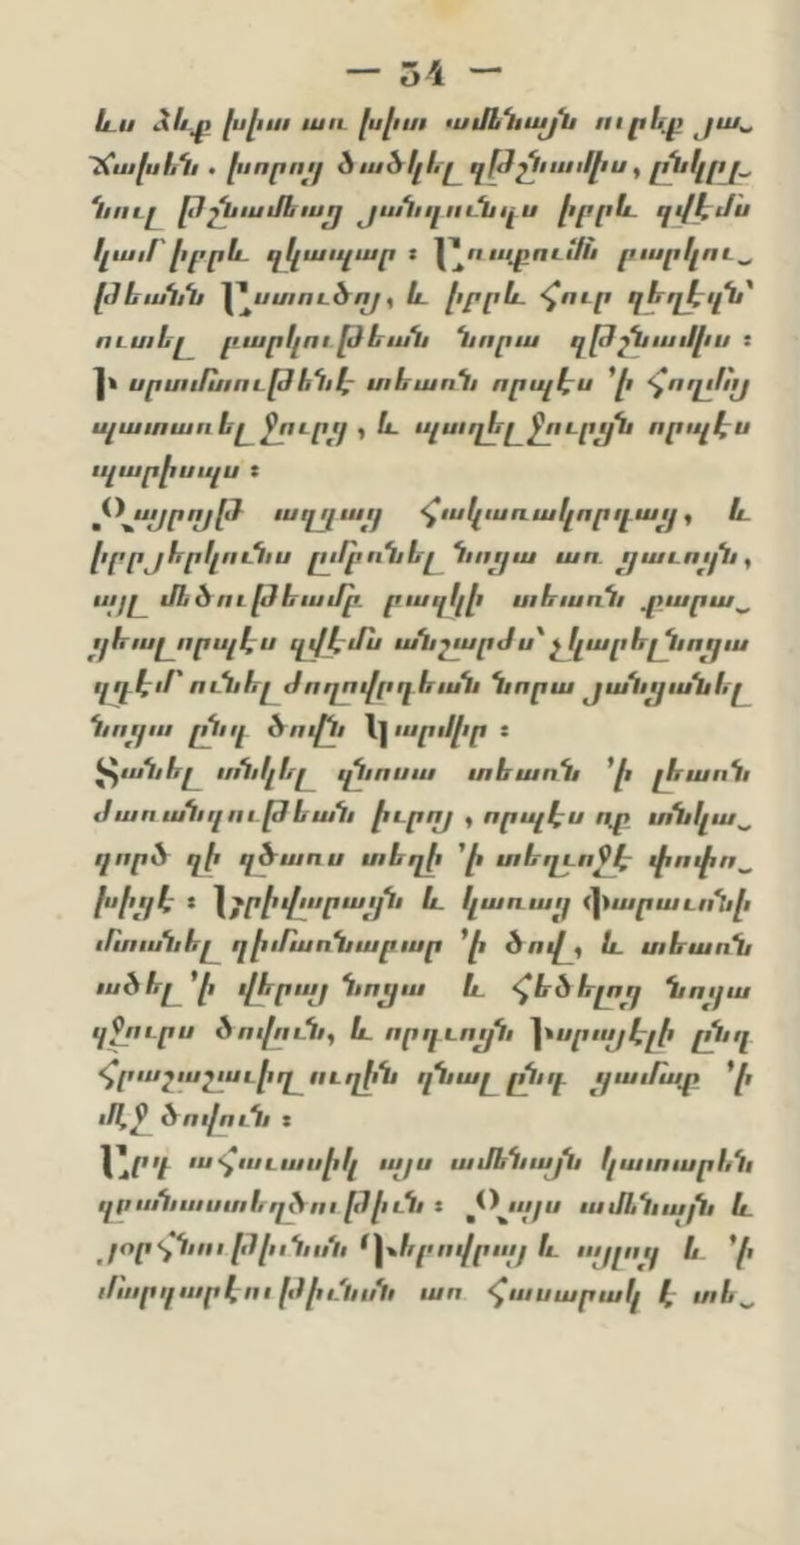 — 54 —
ևս ձևք խիտ առ խիտ ամենայն ուրեք յա֊
ճախեն . խորոց ծածկել զթշնամիս, ընկըլ֊
նուլ թշնամեաց յանդունդս իբրև զվէմս
կամ իբրև զկապար ։ Առաքումն բարկու֊
թեանն Աստուծոյ, և իբրև հուր զեղէգն՝
ուտել բարկութեան նորա զթշնամիս ։
Ի սրտմտութենէ տեառն որպէս ՚ի հողմոյ
պատառել ջուրց , և պաղել ջուրցն որպէս
պարիսպս ։
Զայրոյթ ազգաց հակառակորդաց, և
իբր յերկունս ըմբռնել նոցա առ ցաւոյն,
այլ մեծութեամբ բազկի տեառն քարա֊
ցեալ որպէս զվէմս անշարժս՝ չկարել նոցա
զդէմ ունել ժողովրդեան նորա յանցանել
նոցա ընդ ծովն Կարմիր ։
Տանել տնկել զնոսա տեառն ՚ի լեառն
ժառանգութեան իւրոյ , որպէս ոք տնկա֊
գործ զի զծառս տեղի ՚ի տեղւոջէ փոփո֊
խիցէ ։ Երիվարացն և կառաց Փարաւոնի
մտանել դիմառնաբար ՚ի ծով, և տեառն
ածել ՚ի վերայ նոցա և հեծելոց նոցա
զջուրս ծովուն, և որդւոցն Իսրայէլի ընդ
հրաշաշաւիղ ուղին գնալ ընդ ցամաք ՚ի
մէջ ծովուն ։
Արդ ահաւասիկ այս ամենայն կատարեն
զբանաստեղծութիւն ։ Զայս ամենայն և
յօրհնութիւնսն Դեբովրայ և այլոց և ՚ի
մարգարէութիւնսն առ հասարակ է տե֊